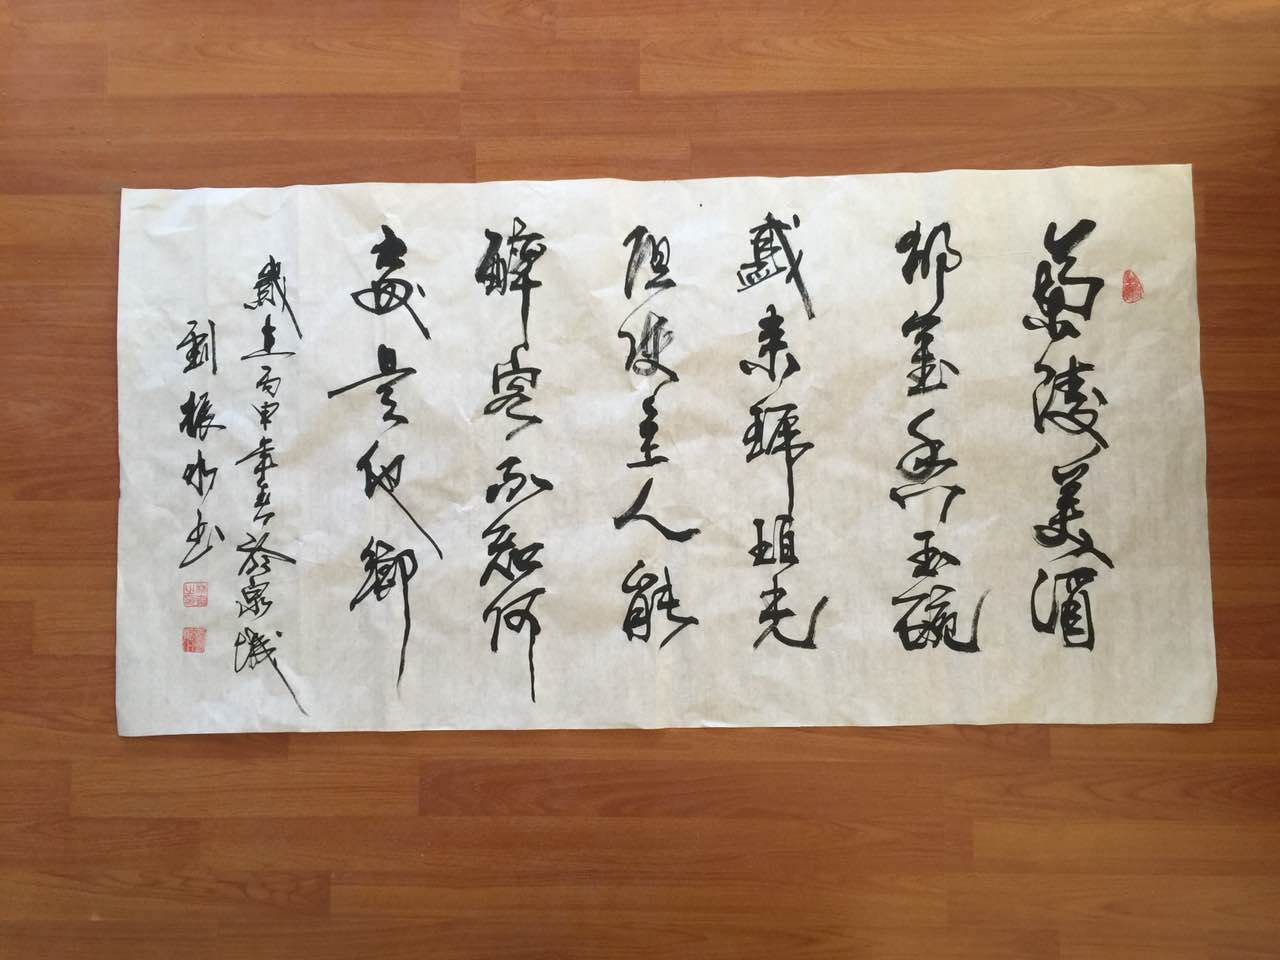 蘭陵美酒
郁金香玉碗
盛来琥珀光
但使主人能
醉客不知何
處是他鄉
歲在丙申年春於泉城
劉振水书